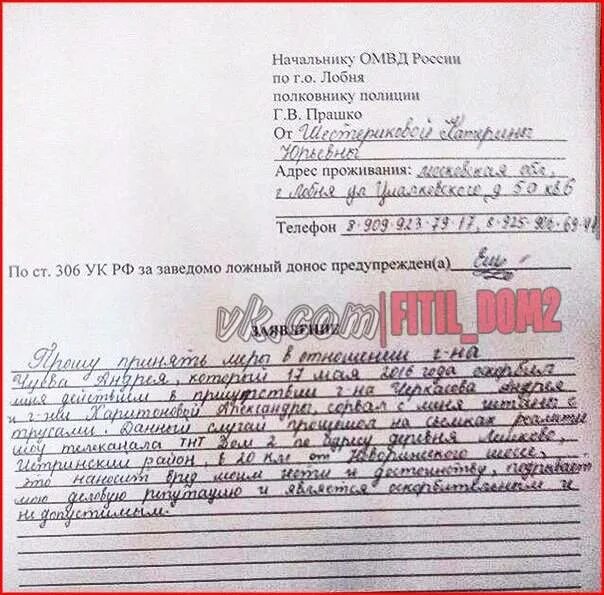 Начальнику ОМВД России
по г.о. Лобня
полковнику полиции
Г.В. Прашко
От Шестериковой Катерины
Юрьевны
Адрес проживания: московская обл,
г Лобня ул д 50 кв 6
Телефон 8-909-923-79-17, 8-925-
По ст. 306 УК РФ за заведомо ложный донос предупрежден(а)
vk.com|FITIL_DOM2
ЗАЯВЛЕНИЕ
Прошу принять меры в отношении г-на
Чуева Андрея, который 17 мая 2016 года оскорбил
меня действием в присутствии г-на Черкасова Андрея
и г-жи Харитоновой Александры, сорвал с меня штаны с
трусами. Данный случай произошел на съемках реалити
шоу телеканала ТНТ Дом 2 по адресу деревня
Истринский район, в 20 км от шоссе,
это наносит вред моим чести и достоинству, подрывает
мою деловую репутацию и является оскорбительным и
не допустимым.